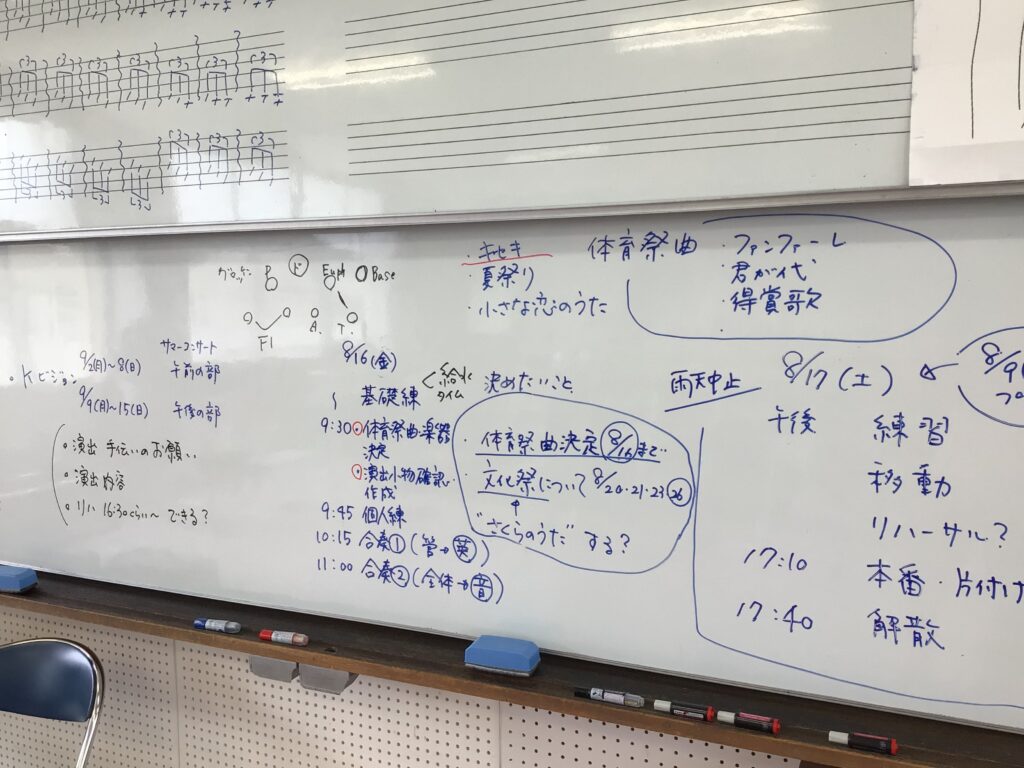 ・キセキ
・夏祭り
・小さな恋のうた
体育祭曲
・ファンファーレ
・君が代
・得賞歌
グロッケン
ド
Euph
Base
Fl
A.
T.
・Kビジョン
サマーコンサート
9/2(月)~8(日) 午前の部
9/9(月)~15(日) 午後の部
・演出 手伝いのお願い
・演出内容
・リハ 16:30ぐらい~できる?
8/16(金)
~ 基礎練 < 給水タイム
9:30 ・体育祭曲楽器
決定
・演出小物確認
作成
9:45 個人練
10:15 合奏①(管→英)
11:00 合奏②(全体→音)
決めたいこと
・体育祭曲決定 8/16まで
・文化祭について 8/20・21・23 26
"さくらのうた" する?
雨天中止
8/17(土)
8/9(
プ
午後 練習
移動
リハーサル?
17:10 本番・片付け
17:40 解散